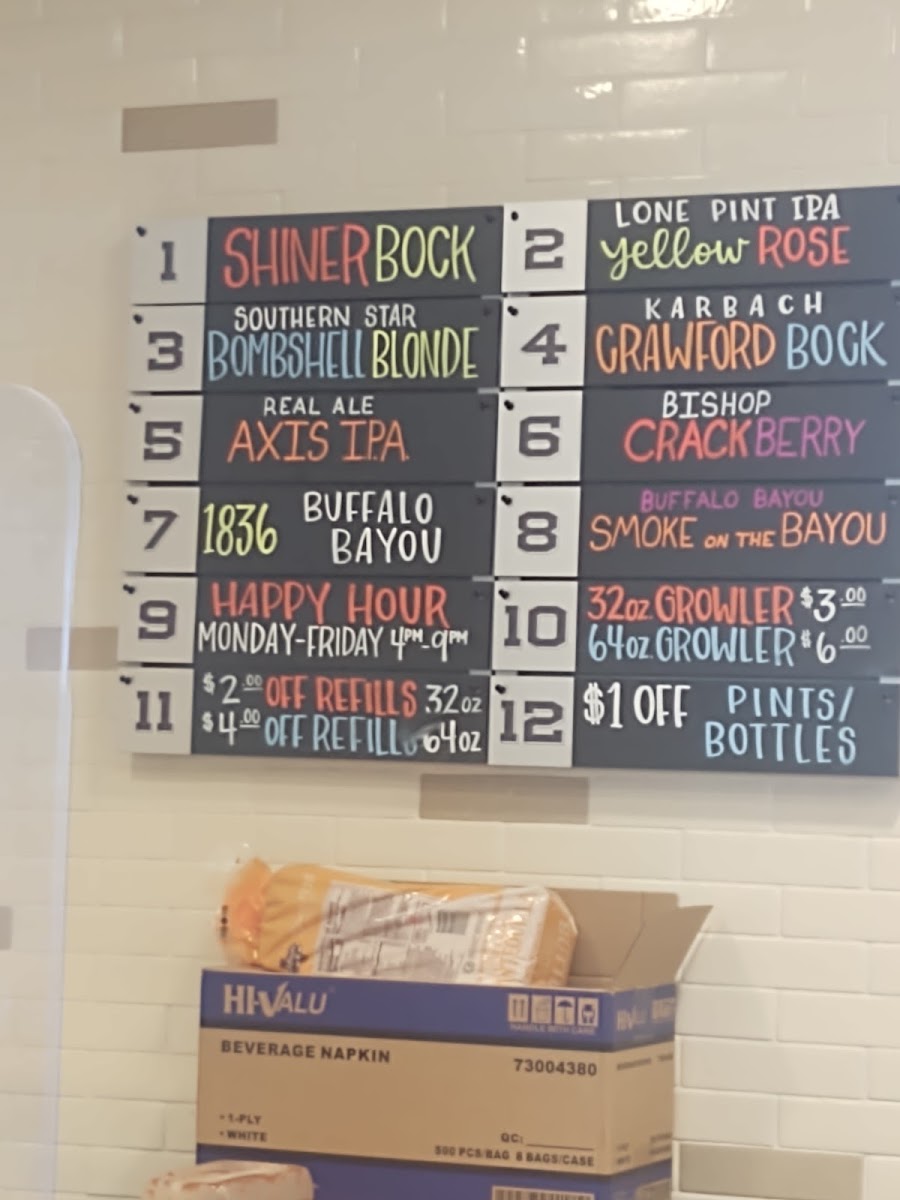 1
SHINER BOCK
2
LONE PINT IPA
yellow ROSE
3
SOUTHERN STAR
BOMBSHELL BLONDE
4
KARBACH
CRAWFORD BOCK
5
REAL ALE
AXIS I.P.A.
6
BISHOP
CRACKBERRY
7
1836 BUFFALO
BAYOU
8
BUFFALO BAYOU
SMOKE ON THE BAYOU
9
HAPPY HOUR
MONDAY-FRIDAY 4PM-9PM
10
32oz. GROWLER $3.00
64oz. GROWLER $6.00
11
$2.00 OFF REFILLS 32oz
$4.00 OFF REFILLS 64oz
12
$1 OFF PINTS/
BOTTLES
HI-VALU
HANDLE WITH CARE
BEVERAGE NAPKIN
73004380
• 1-PLY
• WHITE
QC:
500 PCS/BAG 8 BAGS/CASE